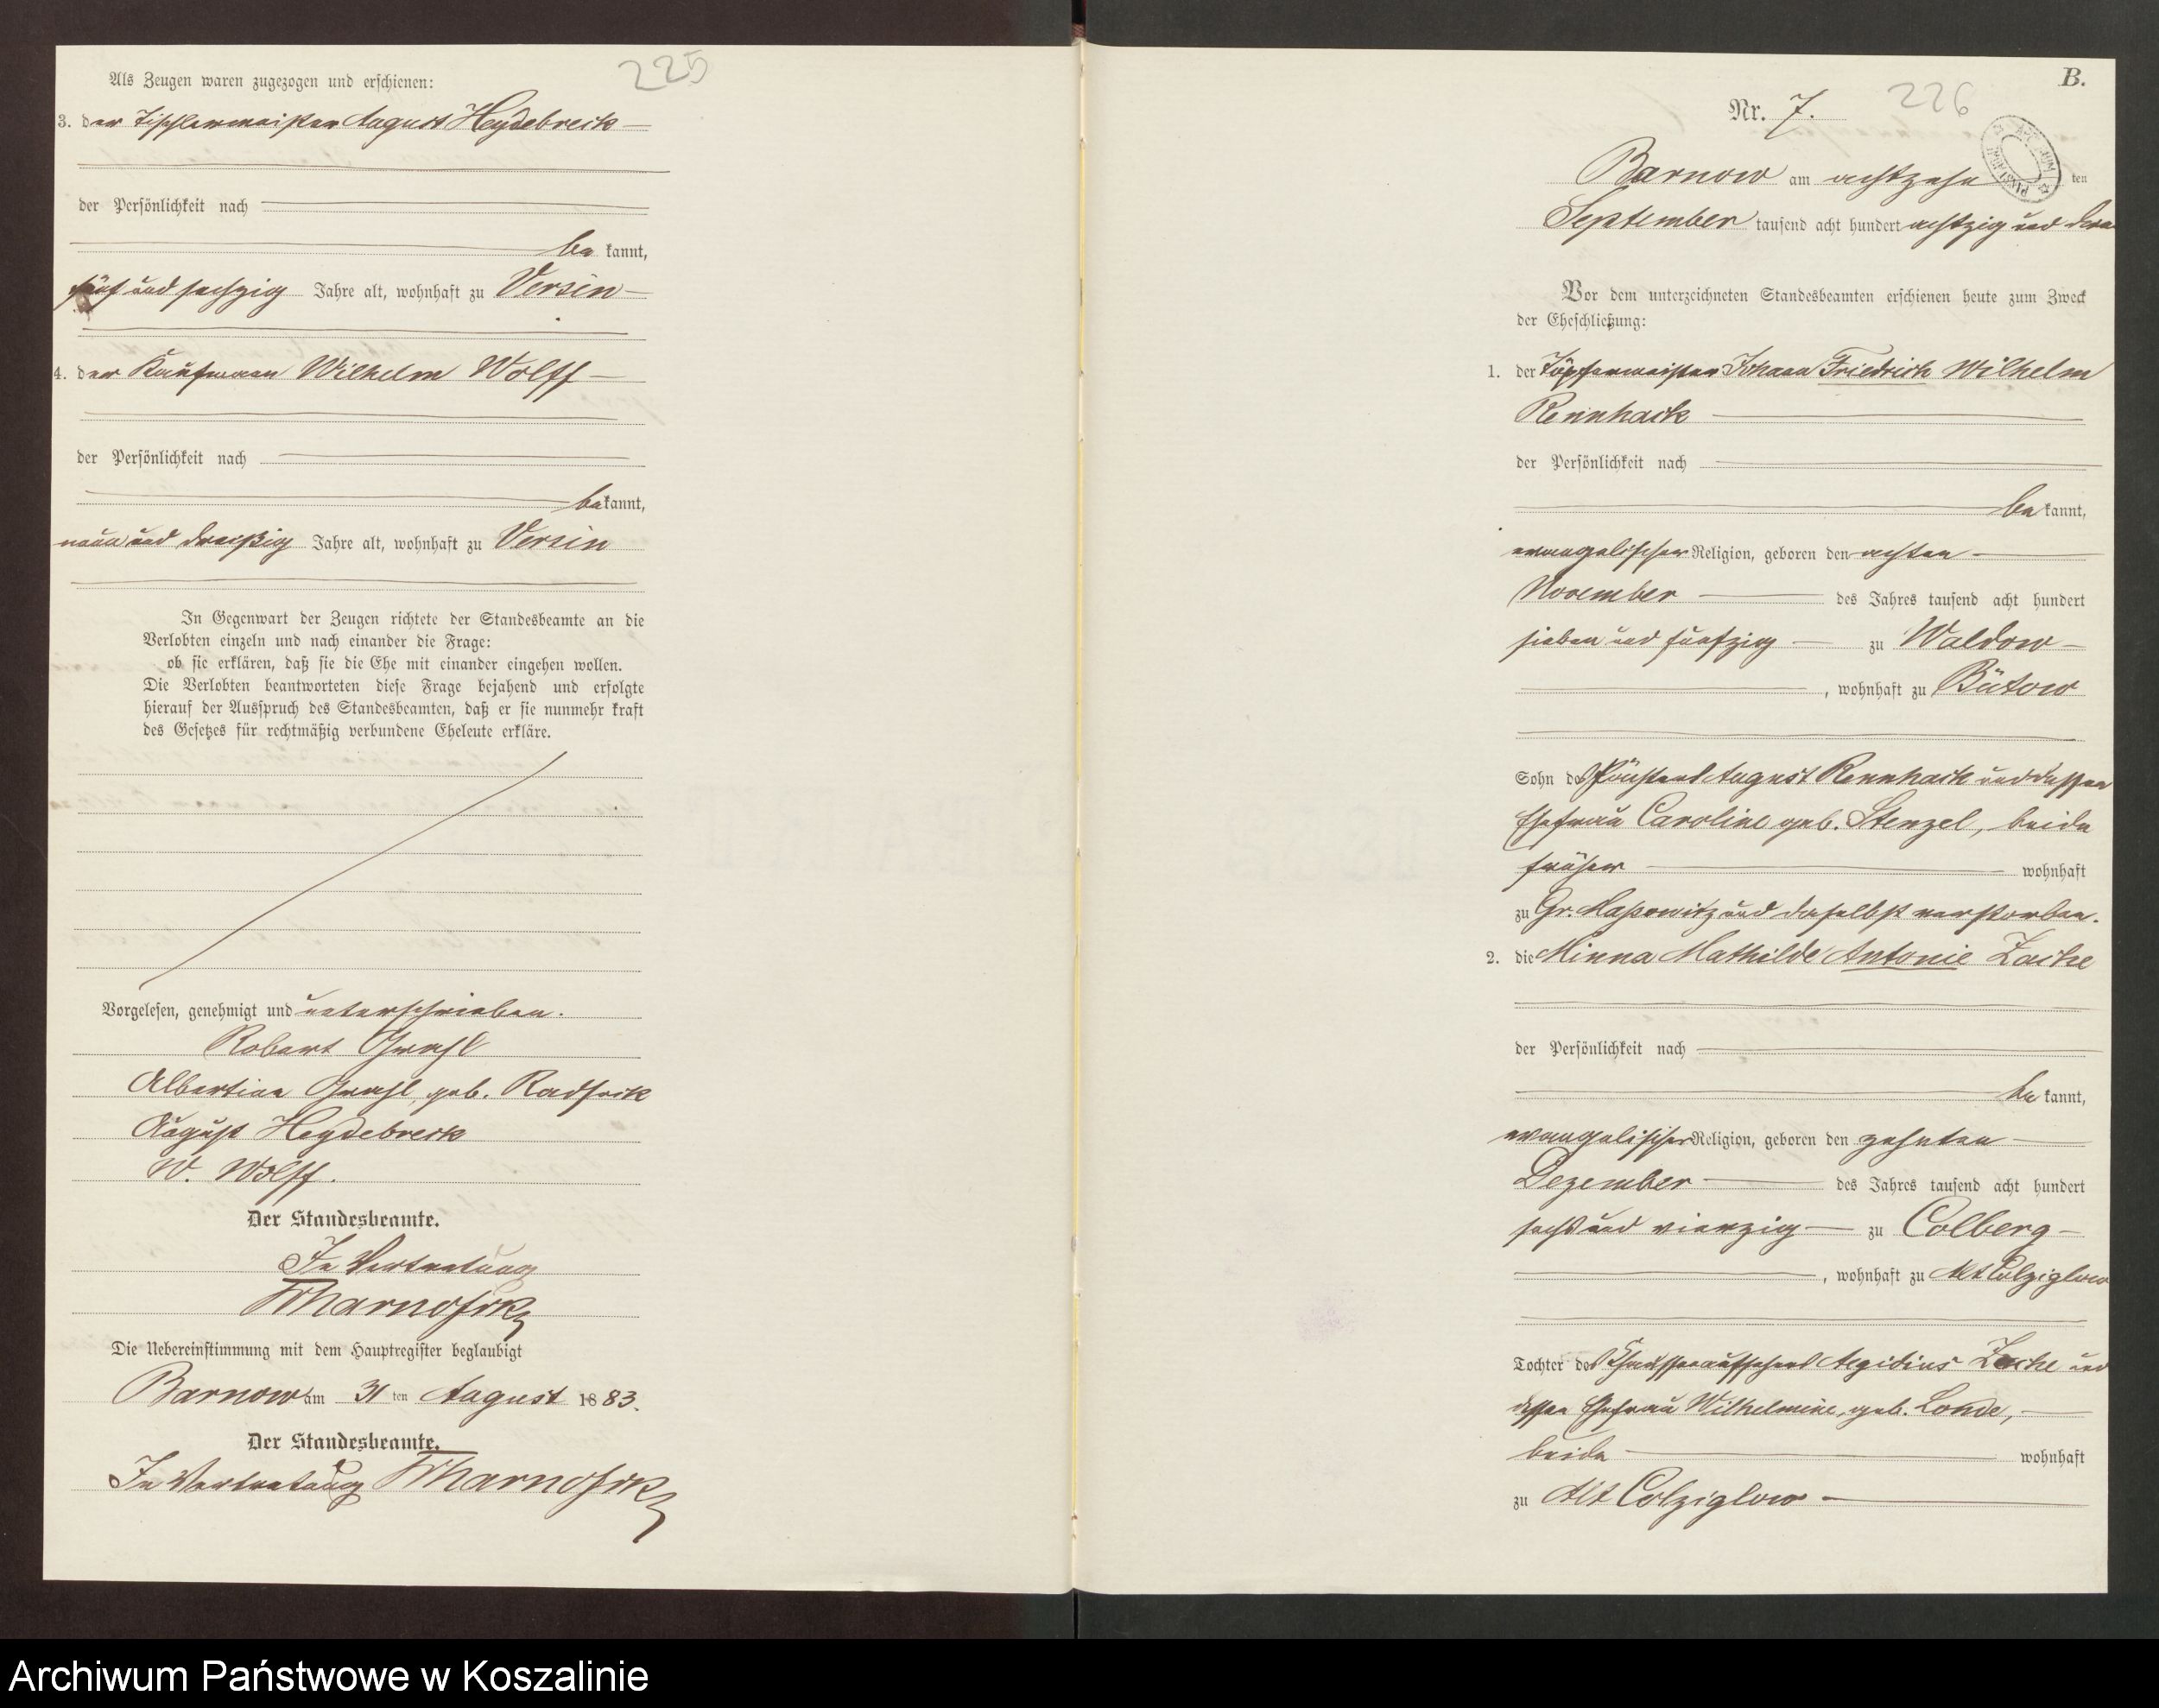 225
Als Zeugen waren zugezogen und erschienen:
3. der Tischlermeister August Heydebreck
der Persönlichkeit nach
be kannt,
fünf und sechzig Jahre alt, wohnhaft zu Versin
4. der Kaufmann Wilhelm Wolff
der Persönlichkeit nach
be kannt,
neun und dreißig Jahre alt, wohnhaft zu Versin
In Gegenwart der Zeugen richtete der Standesbeamte an die
Verlobten einzeln und nach einander die Frage:
ob sie erklären, daß sie die Ehe mit einander eingehen wollen.
Die Verlobten beantworteten diese Frage bejahend und erfolgte
hierauf der Ausspruch des Standesbeamten, daß er sie nunmehr kraft
des Gesetzes für rechtmäßig verbundene Eheleute erkläre.
Vorgelesen, genehmigt und unterschrieben.
Robert
Albertine geb.
August Heydebreck
W. Wolff.
Der Standesbeamte.
In Vertretung
Die Uebereinstimmung mit dem Hauptregister beglaubigt
Barnow am 31 ten August 1883.
Der Standesbeamte.
In Vertretung
B.
226
Nr. 7.
Barnow am achtzehn ten
September tausend acht hundert achtzig und drei
Vor dem unterzeichneten Standesbeamten erschienen heute zum Zweck
der Eheschließung:
1. der Töpfermeister Johann Friedrich Wilhelm
Rennhack
der Persönlichkeit nach
be kannt,
evangelischer Religion, geboren den achten
November des Jahres tausend acht hundert
sieben und fünfzig zu Waldow
, wohnhaft zu Bütow
Sohn des Försters August Rennhack und dessen
Ehefrau Caroline geb. Stenzel, beide
früher wohnhaft
zu Gr. Massowitz und daselbst verstorben.
2. die Minna Mathilde Antonie Zacke
der Persönlichkeit nach
be kannt,
evangelischer Religion, geboren den zehnten
Dezember des Jahres tausend acht hundert
sechs und vierzig zu Colberg
, wohnhaft zu Alt Colziglow
Tochter des Chausseeaufsehers Aegidius Zacke und
dessen Ehefrau Wilhelmine, geb. Londe,
beide wohnhaft
zu Alt Colziglow
Archiwum Państwowe w Koszalinie